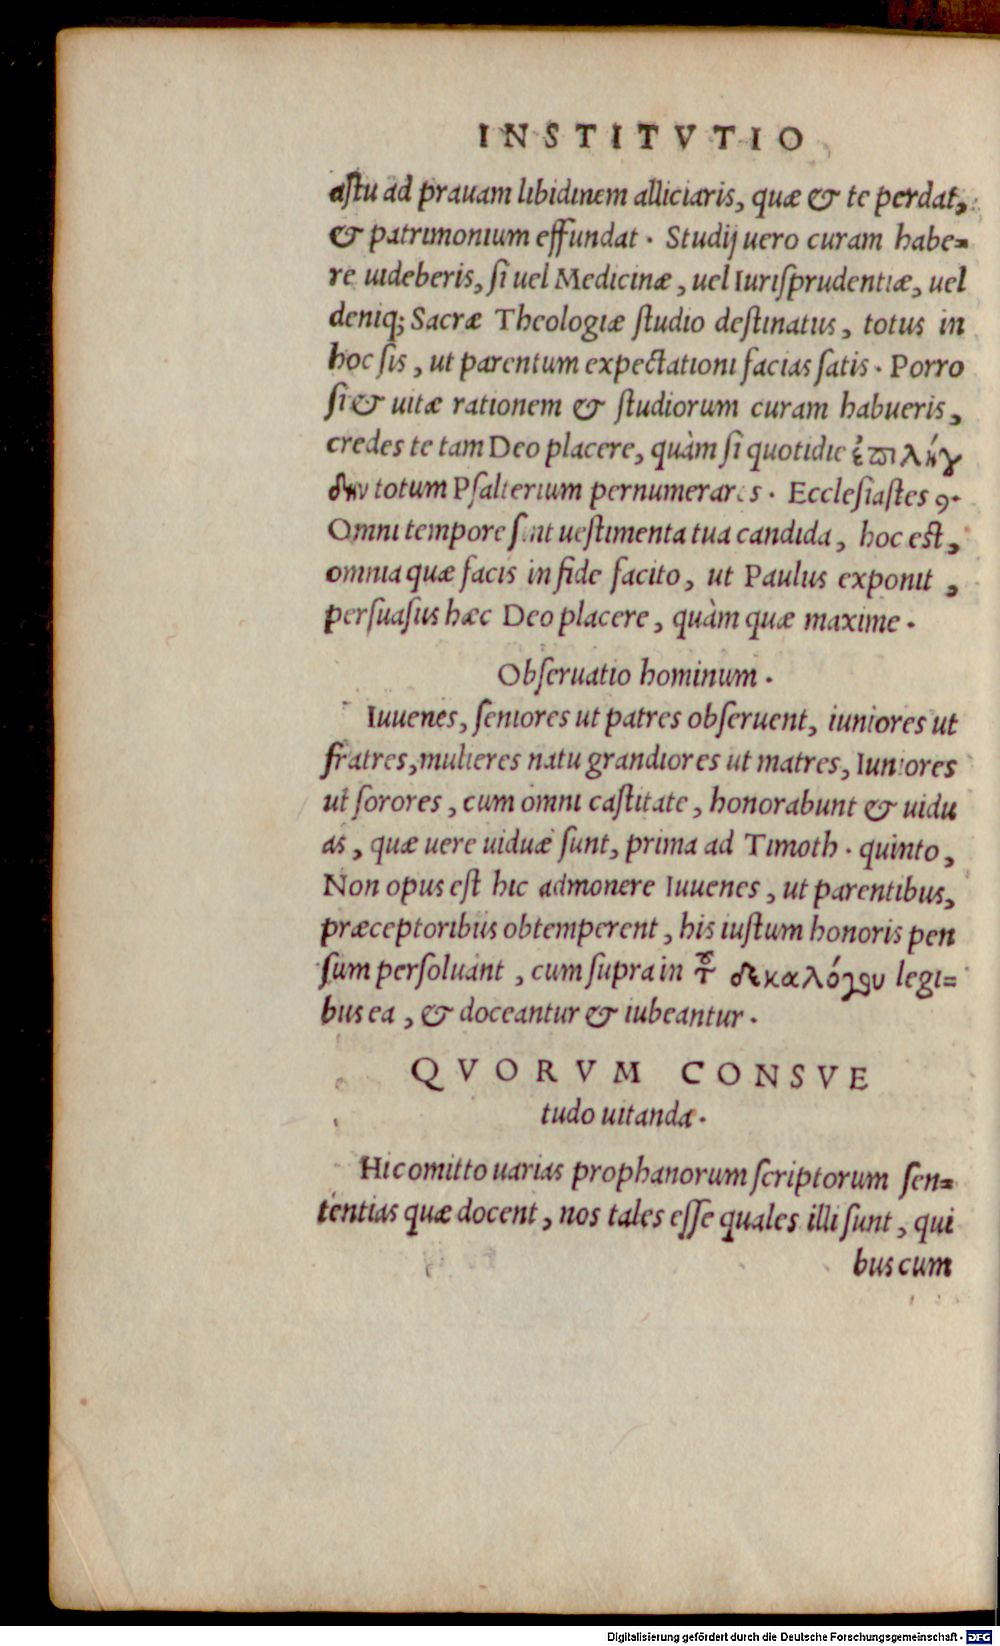 INSTITVTIO
aſtu ad prauam libidinem alliciaris, quæ & te perdat,
& patrimonium effundat. Studij uero curam habe=
re uideberis, ſi uel Medicinæ, uel Iuriſprudentiæ, uel
deniq; Sacræ Theologiæ ſtudio deſtinatus, totus in
hoc ſis, ut parentum expectationi facias ſatis. Porro
ſi & uitæ rationem & ſtudiorum curam habueris,
credes te tam Deo placere, quàm ſi quotidie ἐπιλήγ
δην totum Pſalterium pernumerares. Eccleſiaſtes 9.
Omni tempore ſint ueſtimenta tua candida, hoc eſt,
omnia quæ facis in fide facito, ut Paulus exponit,
perſuaſus hæc Deo placere, quàm quæ maxime.
Obſeruatio hominum.
Iuuenes, ſeniores ut patres obſeruent, iuniores ut
fratres, mulieres natu grandiores ut matres, Iuniores
ut ſorores, cum omni caſtitate, honorabunt & uidu
as, quæ uere uiduæ ſunt, prima ad Timoth. quinto,
Non opus eſt hic admonere Iuuenes, ut parentibus,
præceptoribus obtemperent, his iuſtum honoris pen
ſum perſoluant, cum ſupra in τοῦ δεκαλόγου legi=
bus ea, & doceantur & iubeantur.
QVORVM CONSVE
tudo uitanda.
Hic omitto uarias prophanorum ſcriptorum ſen=
tentias quæ docent, nos tales eſſe quales illi ſunt, qui
bus cum
Digitalisierung gefördert durch die Deutsche Forschungsgemeinschaft - DFG